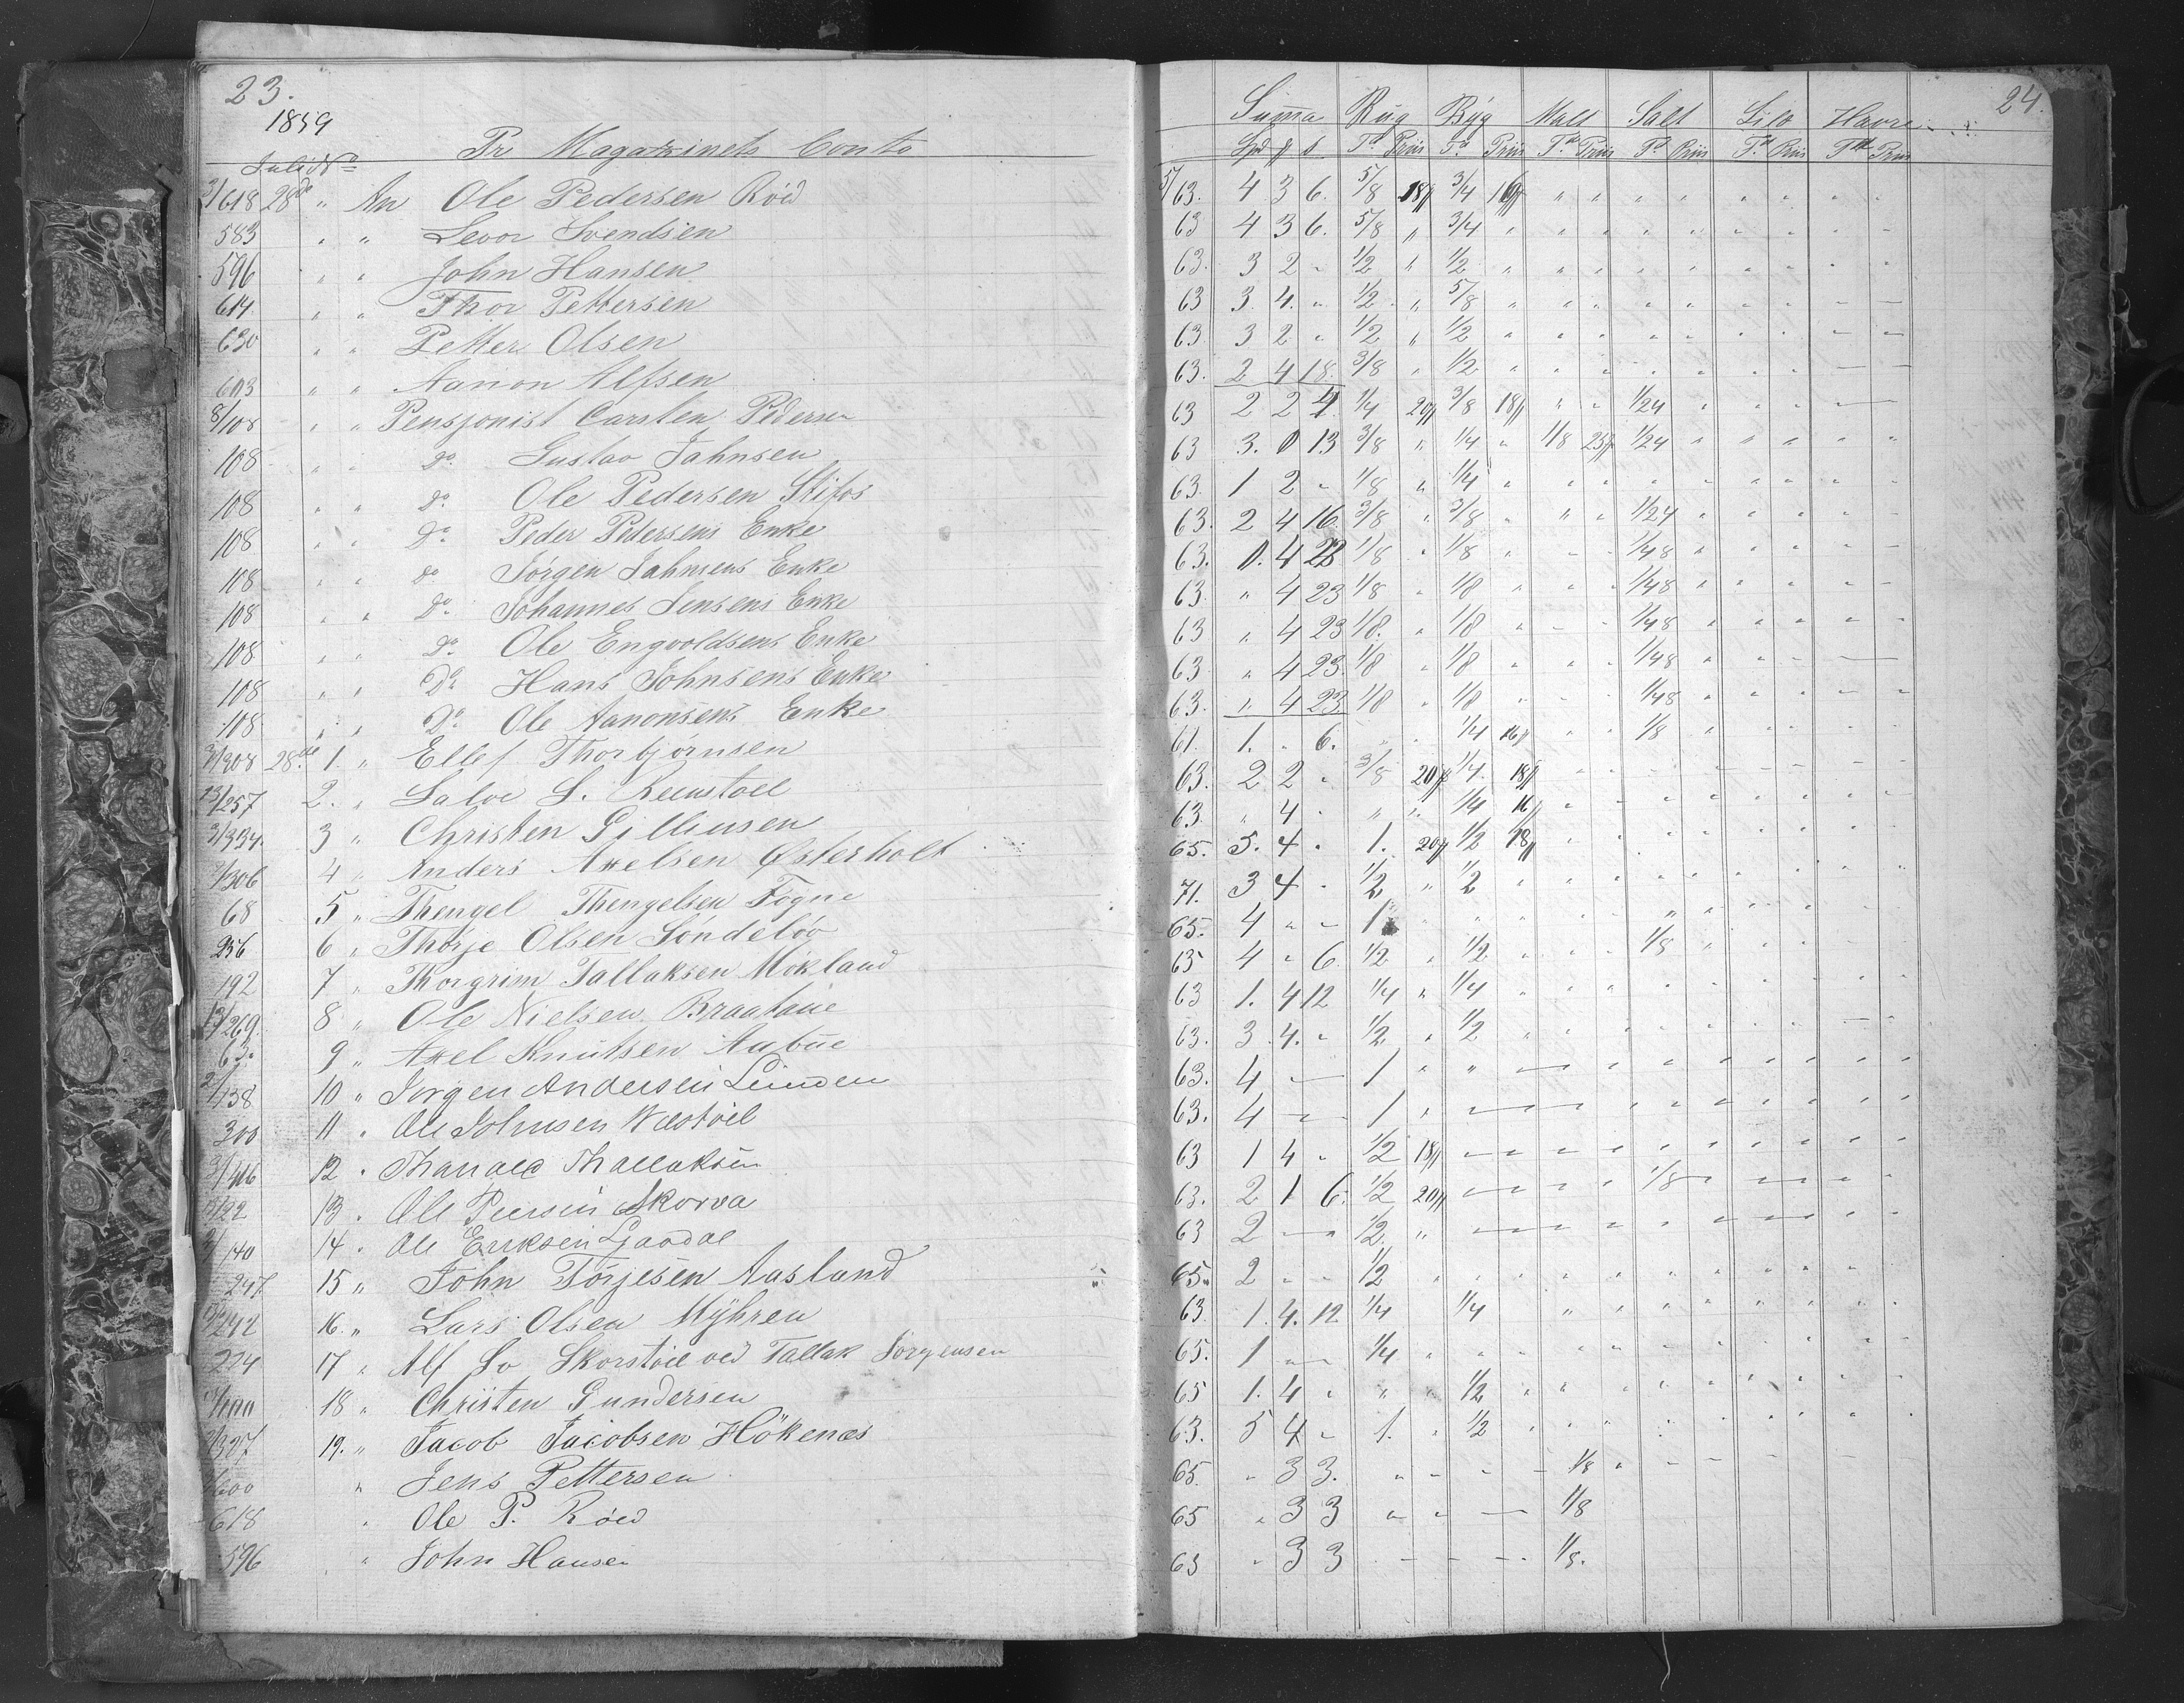 23.
1859
Juli No Pr Magazinets Conto
3/618 28de " An Ole Pedersen Röed
583 " " Levor Svendsen
596 " " John Hansen
614 " " Thor Pettersen
630 " " Petter Olsen
603 " " Aanon Alfsen
8/108 " " Pensjonist Carsten Pedersen
108 " " Do Gustav Jahnsen
108 " " Do Ole Pedersen Stifos
108 " " Do Peder Pedersens Enke
108 " " Do Jörgen Jahnsens Enke
108 " " Do Johannes Jensens Enke
108 " " Do Ole Engvoldsens Enke
108 " " Do Hans Johnsens Enke
108 " " Do Ole Aanonsens Enke
3/908 28de 1. " Ellef Thorbjörnsen
13/257 2. " Salve S.
3/334. 3 " Christen Gilliusen
3/306 4 " Anders Axelsen Østerholt
68 5 " Thengel Thengelsen Fogne
256 6 " Thorje Olsen Söndelöv
192 7 " Thorgrim Tallaksen Mökland
13/269. 8 " Ole Nielsen Braataae
63. 9 " Axel Knutsen Aabue
2/138 10 " Jörgen Andersen Lunden
300 11 " Ole Johnsen
3/416 12 " Tharald Thallaksen
13/22 13 " Ole Peersen Skorva
2/140 14 " Ole Eriksen
247 15 " John Törjesen Aasland
13/242 16. " Lars Olsen Myhren
224 17 " Alf So Skorstöl ved Tallak Jörgensen
18 " Christen Gundersen
3/327 19. " Jacob Jacobsen Hökenæs
600 " Jens Pettersen
618 " Ole P. Röed
596 " John Hansen
24.
Suma Rug Byg Malt Salt Sild Havre
Spd ß Td Priis Td Priis Td Priis Td Priis Td Priis Td Priis
5/63. 4 3 6. 5/8 18ß 3/4 16ß " " " " " " " "
63 4 3 6. 5/8 " 3/4 " " " " " " " " "
63. 3 2 " 1/2 " 1/2 " " " " " " " " "
63 3. 4. " 1/2 " 5/8 " " " " " " " " "
63 3 2 " 1/2 " 1/2 " " " " " " " " "
63. 2 4 18. 3/8 " 1/2 " " " " " " " " "
63 2 2 4 1/4 20ß 3/8 18ß " " 1/24 " " " "
63 3. 0 13 3/8 " 1/4 " 1/8 25ß 1/24 " " " " "
63. 1 2 " 1/8 " 1/4 " " " " " " " " "
63. 2 4 16. 3/8 " 3/8 " " " 1/24 " " " " "
63. 0. 4 23 1/8 " 1/8 " " " 1/48 " " " " "
63. " 4 23 1/8 " 1/8 " " " 1/48 " " " " "
63 " 4 23 1/8. " 1/8 " " " 1/48 " " " " "
63 " 4 23. 1/8 " 1/8 " " " 1/48 " " "
63. " 4 23. 1/8 " 1/8 " " " 1/48 " " " " "
61. 1. " 6. " " 1/4 16ß " " 1/8 " " " " "
63. 2 2 " 3/8 20ß 1/4. 18ß " " " " " " " "
63. " 4 " " " 1/4 16 " " " " " " " "
65. 5. 4 " 1. 20ß 1/2 18ß " " " " " " " "
71. 3 4 " 1/2 " 1/2 " " " " " " " " "
65. 4 " " 1 " " " " " " " " " " "
65 4 " 6. 1/2 " 1/2 " " " 1/8 " " " " "
63 1. 4 12 1/4 " 1/4 " " " " " " " " "
63. 3. 4. " 1/2 " 1/2 " " " " " " " " "
63. 4 — 1 " " " " " " " " " " "
63. 4 — 1 " " " " " " " " " " "
63 1 4 " 1/2 18ß " " " " " " " " " "
63. 2 1 6. 1/2 20ß " " " " 1/8 " " " " "
63 2 — 1/2. " " " " " " " " " " "
65. 2 " " 1/2 " " " " " " " " " " "
63. 1. 4. 12 1/4 1/4 " " " " " " " "
65. 1 " " 1/4 " " " " " " " " " " "
65 1. 4 " " " 1/2 " " " " " " " " "
63. 5 4 " 1. " 1/2 " " " " " " " " "
65. " 3 3. " " " " 1/8 " " " " " " "
65 " 3 3 " " — 1/8
63 " 3 3 " " " " 1/8.